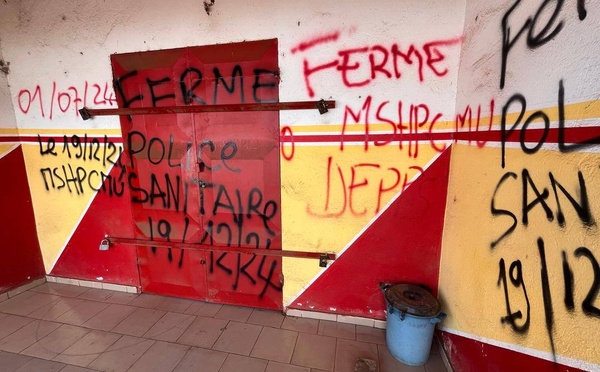 01/07/24
Le 19/12/24
MSHPCMU
FERME
POLICE
SANITAIRE
19/12/24
FERME
MSHPCMU
DEPP
Fe
POL
SAN
19/12